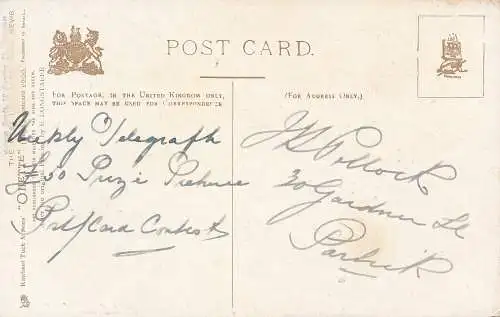 POST CARD.
FOR POSTAGE, IN THE UNITED KINGDOM ONLY,
THIS SPACE MAY BE USED FOR CORRESPONDENCE
(FOR ADDRESS ONLY.)
Weekly Telegraph
£50 Prize Picture
Post Card Contest
J H Pollock
30 Gardner St
Partick
"OILETTE"